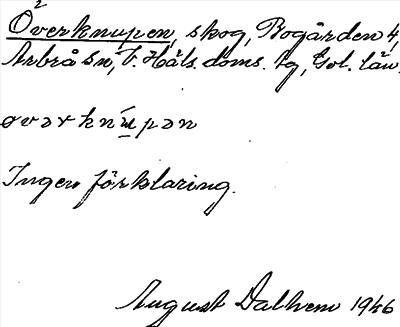 Överknupen, skog, Rogården 4,
Arbrå Sn, V. Häls. doms. tg, Gol. län.
øvərknupən
Ingen förklaring.
August Dalhem 1946